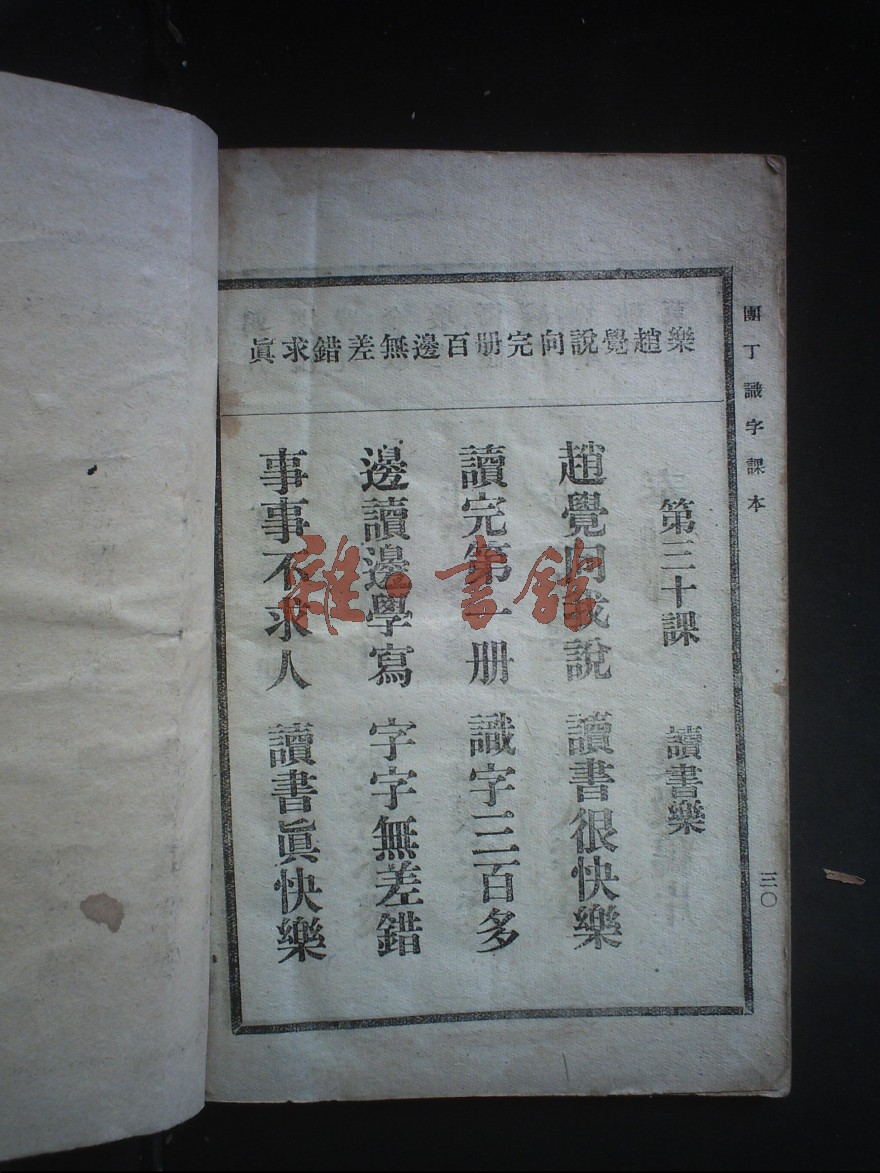 團丁識字課本
三〇
樂趙覺說向完册百邊無差錯求眞
第三十課 讀書樂
趙覺向我說 讀書很快樂
讀完第一册 識字三百多
邊讀邊學寫 字字無差錯
事事不求人 讀書眞快樂
雜·書館